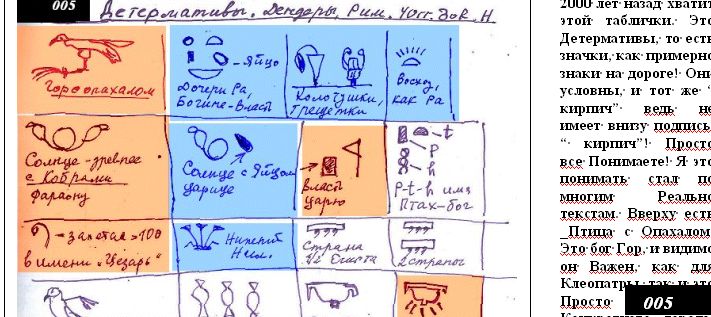 005
Детермативы. Дендеры. Рим. Yorr. док. Н
Гор с опахалом
- Яйцо
Дочери Ра,
Богине-Власт
Колотушки,
трещетки
Восход,
как Ра
Солнце - древнее
с Кобрами
фараону
Солнце с Яйцом
царице
Власт
Царю
- t
- P
- h
P-t-h имя
Птах-бог
- запятая > 100
в имени "Цезарь"
Нижний
Нил.
Страна
из Египта
2 страны
2000 лет назад хватит
этой таблички. Это
Детермативы, то есть
значки, как примерно
знаки на дороге! Они
условны, и тот же "
кирпич" ведь не
имеет внизу подпись
"- кирпич"! Просто
все Понимаете! Я это
понимать стал по
многим Реально
текстам. Вверху есть
_Птица с Опахалом
Это бог Гор, и видимо
он Важен, как для
Клеопатры, так и это
Просто
005